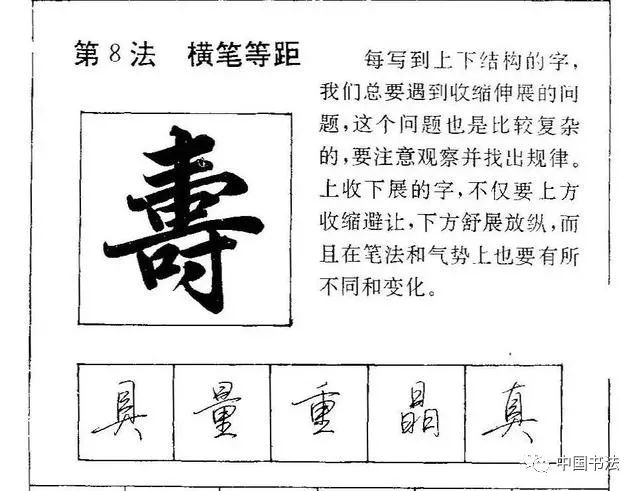 第8法 横笔等距
每写到上下结构的字，
我们总要遇到收缩伸展的问
题，这个问题也是比较复杂
的，要注意观察并找出规律。
上收下展的字，不仅要上方
收缩避让，下方舒展放纵，而
且在笔法和气势上也要有所
不同和变化。
壽
具 量 重 晶 真
中国书法